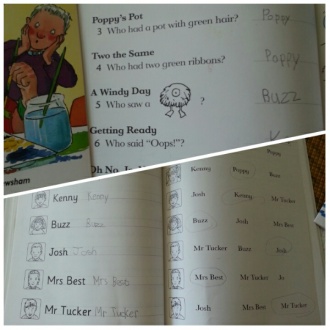 Poppy's Pot
3 Who had a pot with green hair? Poppy
Two the Same
4 Who had two green ribbons? Poppy
A Windy Day
5 Who saw a ? Buzz
Getting Ready
6 Who said "Oops!"? K
Oh No,
ewsham
Kenny Kenny
Buzz Buzz
Josh Josh
Mrs Best Mrs Best
Mr Tucker Mr Tucker
Poppy
Kenny Poppy Buzz
Josh Kenny Mr Tucker
Buzz Josh Mrs Best
Mr Tucker Buzz Josh
Mrs Best Mr Tucker Jo
Josh Mrs Best Mr Tucker